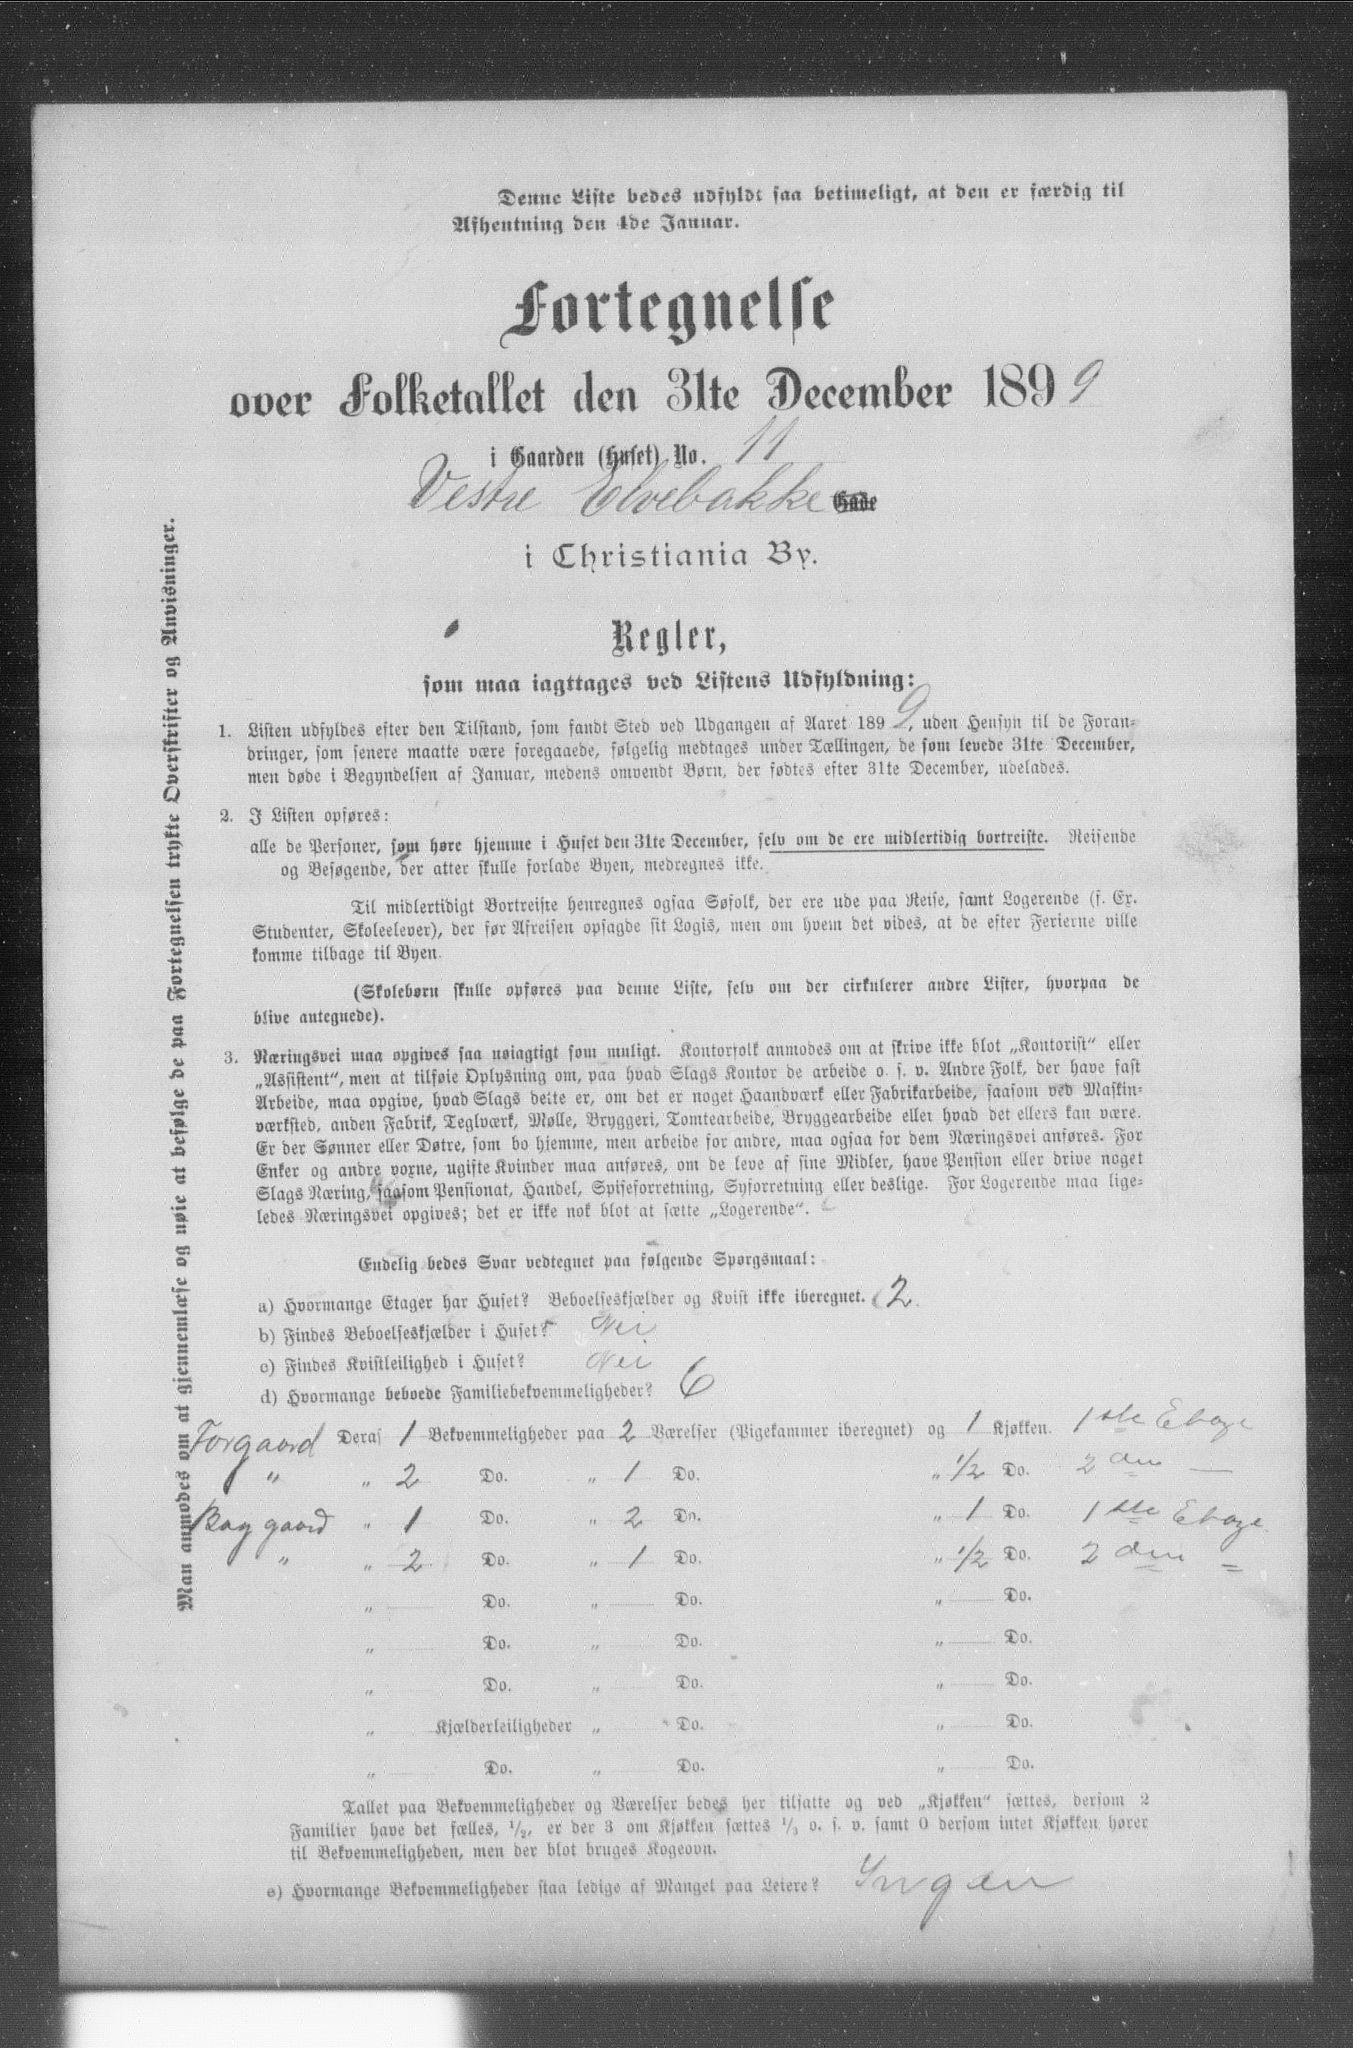 Denne Liste bedes udfyldt saa betimeligt, at den er færdig til
Afhentning den 4de Januar.
Fortegnelse
over Folketallet den 31te December 1899
i Gaarden (Huset) No. 11
Vestre Elvebakke Gade
i Christiania By.
Regler,
som maa iagttages ved Listens Udfyldning:
1. Listen udfyldes efter den Tilstand, som fandt Sted ved Udgangen af Aaret 1899, uden Hensyn til de Foran-
dringer, som senere maatte være foregaaede, følgelig medtages under Tællingen, de som levede 31te December,
men døde i Begyndelsen af Januar, medens omvendt Børn, der fødtes efter 31te December, udelades.
2. I Listen opføres:
alle de Personer, som høre hjemme i Huset den 31te December, selv om de ere midlertidig bortreiste. Reisende
og Besøgende, der atter skulle forlade Byen, medregnes ikke.
Til midlertidigt Bortreiste henregnes ogsaa Søfolk, der ere ude paa Reise, samt Logerende (f. Ex.
Studenter, Skoleelever), der før Afreisen opsagde sit Logis, men om hvem det vides, at de efter Ferierne ville
komme tilbage til Byen.
(Skolebørn skulle opføres paa denne Liste, selv om der cirkulerer andre Lister, hvorpaa de
blive antegnede).
3. Næringsvei maa opgives saa nøiagtigt som muligt. Kontorfolk anmodes om at skrive ikke blot „Kontorist“ eller
„Assistent“, men at tilføie Oplysning om, paa hvad Slags Kontor de arbeide o. s. v. Andre Folk, der have fast
Arbeide, maa opgive, hvad Slags dette er, om det er noget Haandværk eller Fabrikarbeide, saasom ved Maskin-
værksted, anden Fabrik, Teglværk, Mølle, Bryggeri, Tomtearbeide, Bryggearbeide eller hvad det ellers kan være.
Er der Sønner eller Døtre, som bo hjemme, men arbeide for andre, maa ogsaa for dem Næringsvei anføres. For
Enker og andre voxne, ugifte Kvinder maa anføres, om de leve af sine Midler, have Pension eller drive noget
Slags Næring, saasom Pensionat, Handel, Spiseforretning, Syforretning eller deslige. For Logerende maa lige-
ledes Næringsvei opgives; det er ikke nok blot at sætte „Logerende“.
Endelig bedes Svar vedtegnet paa følgende Spørgsmaal:
a) Hvormange Etager har Huset? Beboelseskjælder og Kvist ikke iberegnet. 2.
b) Findes Beboelseskjælder i Huset? Nei
c) Findes Kvistleilighed i Huset? Nei
d) Hvormange beboede Familiebekvemmeligheder? 6
Forgaard Deraf 1 Bekvemmeligheder paa 2 Værelser (Pigekammer iberegnet) og 1 Kjøkken. 1ste Etage
„ „ 2 Do. „ 1 Do. „ 1/2 Do. 2den —
Baggaard „ 1 Do. „ 2 Do. „ 1 Do. 1ste Etage.
„ „ 2 Do. „ 1 Do. „ 1/2 Do. 2den =
„ Do. „ Do. „ Do.
„ Do. „ Do. „ Do.
„ Do. „ Do. „ Do.
„ Kjælderleiligheder „ Do. „ Do.
„ Do. „ Do. „ Do.
Tallet paa Bekvemmeligheder og Værelser bedes her tilsatte og ved „Kjøkken“ sættes, dersom 2
Familier have det fælles, 1/2, er der 3 om Kjøkken sættes 1/3 o. s. v. samt 0 dersom intet Kjøkken hører
til Bekvemmeligheden, men der blot bruges Kogeovn.
e) Hvormange Bekvemmeligheder staa ledige af Mangel paa Leiere? Ingen
Man anmodes om at gjennemlæse og nøie at befølge de paa Fortegnelsen trykte Overskrifter og Anvisninger.